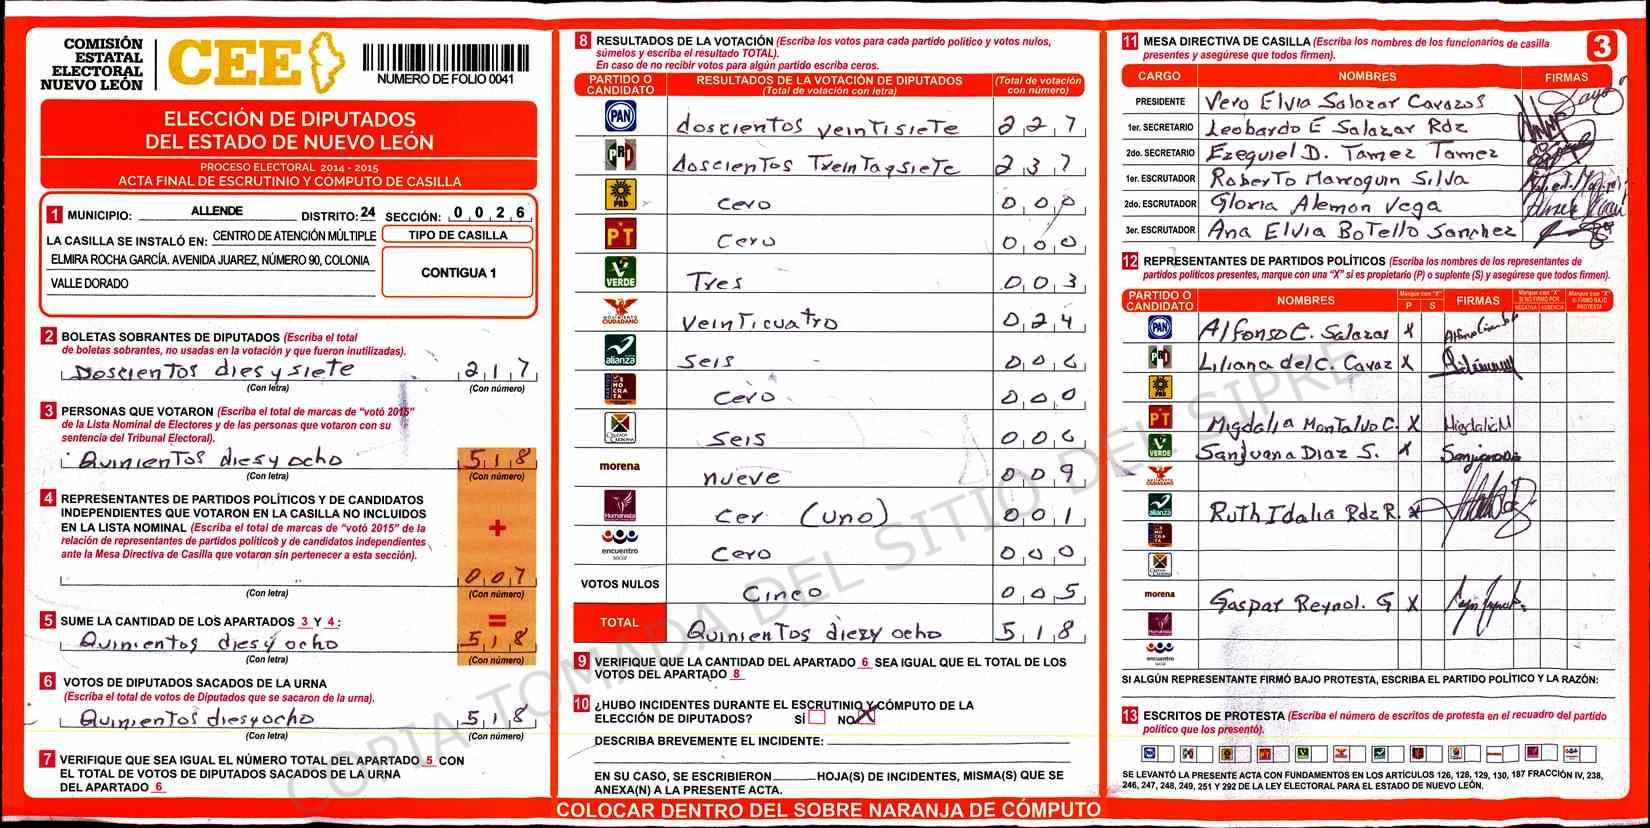 COMISIÓN
ESTATAL
ELECTORAL
NUEVO LEÓN
CEE
NUMERO DE FOLIO 0041
ELECCIÓN DE DIPUTADOS
DEL ESTADO DE NUEVO LEÓN
PROCESO ELECTORAL 2014 - 2015
ACTA FINAL DE ESCRUTINIO Y CÓMPUTO DE CASILLA
1 MUNICIPIO: ALLENDE DISTRITO: 24 SECCIÓN: 0 0 2 6
LA CASILLA SE INSTALÓ EN: CENTRO DE ATENCIÓN MÚLTIPLE
ELMIRA ROCHA GARCÍA. AVENIDA JUAREZ, NÚMERO 90, COLONIA
VALLE DORADO
TIPO DE CASILLA
CONTIGUA 1
2 BOLETAS SOBRANTES DE DIPUTADOS (Escriba el total
de boletas sobrantes, no usadas en la votación y que fueron inutilizadas).
Doscientos dies y siete 2 1 7
(Con letra) (Con número)
3 PERSONAS QUE VOTARON (Escriba el total de marcas de "votó 2015"
de la Lista Nominal de Electores y de las personas que votaron con su
sentencia del Tribunal Electoral).
Quinientos dies y ocho 5 1 8
(Con letra) (Con número)
4 REPRESENTANTES DE PARTIDOS POLÍTICOS Y DE CANDIDATOS
INDEPENDIENTES QUE VOTARON EN LA CASILLA NO INCLUIDOS
EN LA LISTA NOMINAL (Escriba el total de marcas de "votó 2015" de la
relación de representantes de partidos políticos y de candidatos independientes
ante la Mesa Directiva de Casilla que votaron sin pertenecer a esta sección).
+
0 0 7
(Con letra) (Con número)
5 SUME LA CANTIDAD DE LOS APARTADOS 3 Y 4: =
Quinientos dies y ocho 5 1 8
(Con letra) (Con número)
6 VOTOS DE DIPUTADOS SACADOS DE LA URNA
(Escriba el total de votos de Diputados que se sacaron de la urna).
Quinientos diesyocho 5 1 8
(Con letra) (Con número)
7 VERIFIQUE QUE SEA IGUAL EL NÚMERO TOTAL DEL APARTADO 5 CON
EL TOTAL DE VOTOS DE DIPUTADOS SACADOS DE LA URNA
DEL APARTADO 6
8 RESULTADOS DE LA VOTACIÓN (Escriba los votos para cada partido político y votos nulos,
súmelos y escriba el resultado TOTAL).
En caso de no recibir votos para algún partido escriba ceros.
PARTIDO O CANDIDATO RESULTADOS DE LA VOTACIÓN DE DIPUTADOS (Total de votación con letra) (Total de votación con número)
PAN doscientos veintisiete 2 2 7
PRI doscientos Treintaysiete 2 3 7
PRD cero 0 0 0
PT cero 0 0 0
VERDE Tres 0 0 3
MOVIMIENTO CIUDADANO veinticuatro 0 2 4
alianza seis 0 0 6
DEMOCRATA cero 0 0 0
CRUZADA CIUDADANA seis 0 0 6
morena nueve 0 0 9
Humanista cer (uno) 0 0 1
encuentro social cero 0 0 0
VOTOS NULOS Cinco 0 0 5
TOTAL Quinientos diezy ocho 5 1 8
9 VERIFIQUE QUE LA CANTIDAD DEL APARTADO 6 SEA IGUAL QUE EL TOTAL DE LOS
VOTOS DEL APARTADO 8
10 ¿HUBO INCIDENTES DURANTE EL ESCRUTINIO Y CÓMPUTO DE LA
ELECCIÓN DE DIPUTADOS? SÍ NO X
DESCRIBA BREVEMENTE EL INCIDENTE:
EN SU CASO, SE ESCRIBIERON HOJA(S) DE INCIDENTES, MISMA(S) QUE SE
ANEXA(N) A LA PRESENTE ACTA.
COLOCAR DENTRO DEL SOBRE NARANJA DE CÓMPUTO
11 MESA DIRECTIVA DE CASILLA (Escriba los nombres de los funcionarios de casilla
presentes y asegúrese que todos firmen).
3
CARGO NOMBRES FIRMAS
PRESIDENTE Vero Elvia Salazar Cavazos
1er. SECRETARIO Leobardo E Salazar Rdz
2do. SECRETARIO Ezequiel D. Tamez Tamez
1er. ESCRUTADOR Roberto Marroquin Silva
2do. ESCRUTADOR Gloria Aleman Vega
3er. ESCRUTADOR Ana Elvia Botello Sanchez
12 REPRESENTANTES DE PARTIDOS POLÍTICOS (Escriba los nombres de los representantes de
partidos políticos presentes, marque con una "X" si es propietario (P) o suplente (S) y asegúrese que todos firmen).
PARTIDO O CANDIDATO NOMBRES Marque con "X" P S FIRMAS Marque con "X" SI NO FIRMÓ POR NEGATIVA AUSENCIA Marque con "X" SI FIRMÓ BAJO PROTESTA
PAN Alfonso C. Salazar X
PRI Liliana del C. Cavaz X
PRD
PT Migdalia Montalvo C. X Migdalia M
VERDE Sanjuana Diaz S. X Sanjuana
MOVIMIENTO CIUDADANO
alianza Ruth Idalia Rdz R. X
DEMOCRATA
CRUZADA CIUDADANA
morena Gaspar Reynol. G X
Humanista
encuentro social
SI ALGÚN REPRESENTANTE FIRMÓ BAJO PROTESTA, ESCRIBA EL PARTIDO POLÍTICO Y LA RAZÓN:
13 ESCRITOS DE PROTESTA (Escriba el número de escritos de protesta en el recuadro del partido
político que los presentó).
SE LEVANTÓ LA PRESENTE ACTA CON FUNDAMENTOS EN LOS ARTÍCULOS 126, 128, 129, 130, 187 FRACCIÓN IV, 238,
246, 247, 248, 249, 251 Y 292 DE LA LEY ELECTORAL PARA EL ESTADO DE NUEVO LEÓN.
COPIA TOMADA DEL SITIO DEL SIPRE